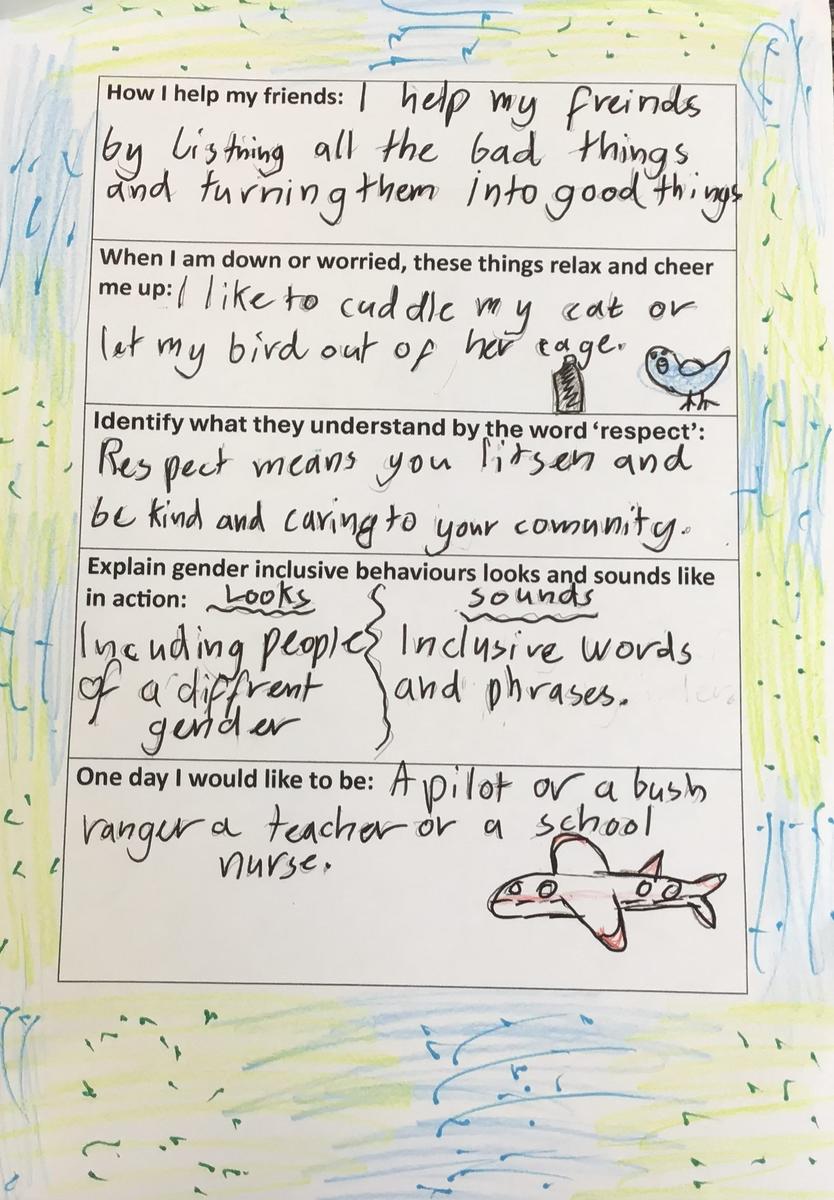 How I help my friends: I help my freinds
by listning all the bad things
and turning them into good things
When I am down or worried, these things relax and cheer
me up: I like to cuddle my cat or
let my bird out of her cage.
Identify what they understand by the word ‘respect’:
Respect means you litsen and
be kind and caring to your comunity.
Explain gender inclusive behaviours looks and sounds like
in action: Looks sounds
Incuding people Inclusive words
of a diffrent and phrases.
gender
One day I would like to be: A pilot or a bush
ranger a teacher or a school
nurse.